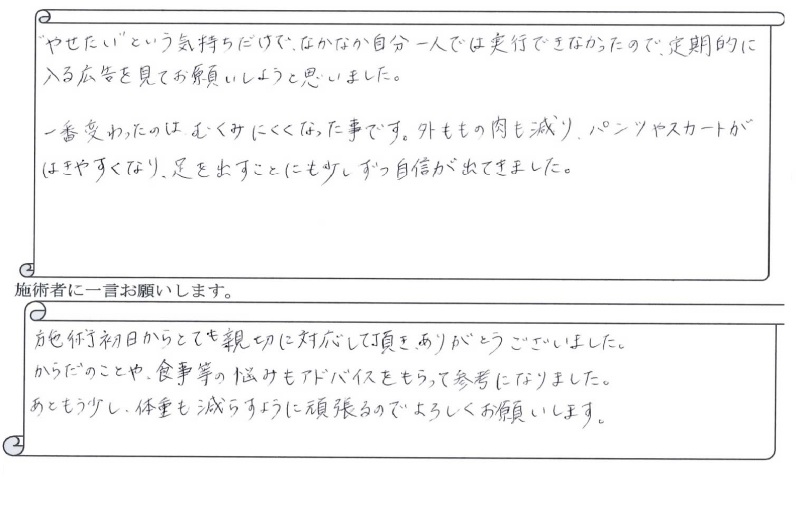 "やせたい"という気持ちだけで、なかなか自分一人では実行できなかったので、定期的に
入る広告を見てお願いしようと思いました。
一番変わったのは むくみにくくなった事です。外ももの肉も減り、パンツやスカートが
はきやすくなり、足を出すことにも少しずつ自信が出てきました。
施術者に一言お願いします。
施術初日からとても親切に対応して頂き、ありがとうございました。
からだのことや、食事等の悩みもアドバイスをもらって参考になりました。
あともう少し、体重も減らすように頑張るのでよろしくお願いします。